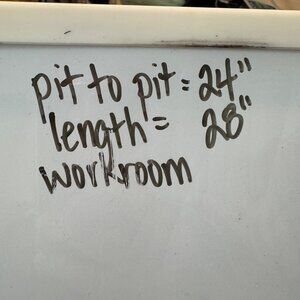 pit to pit = 24"
length = 28"
workroom